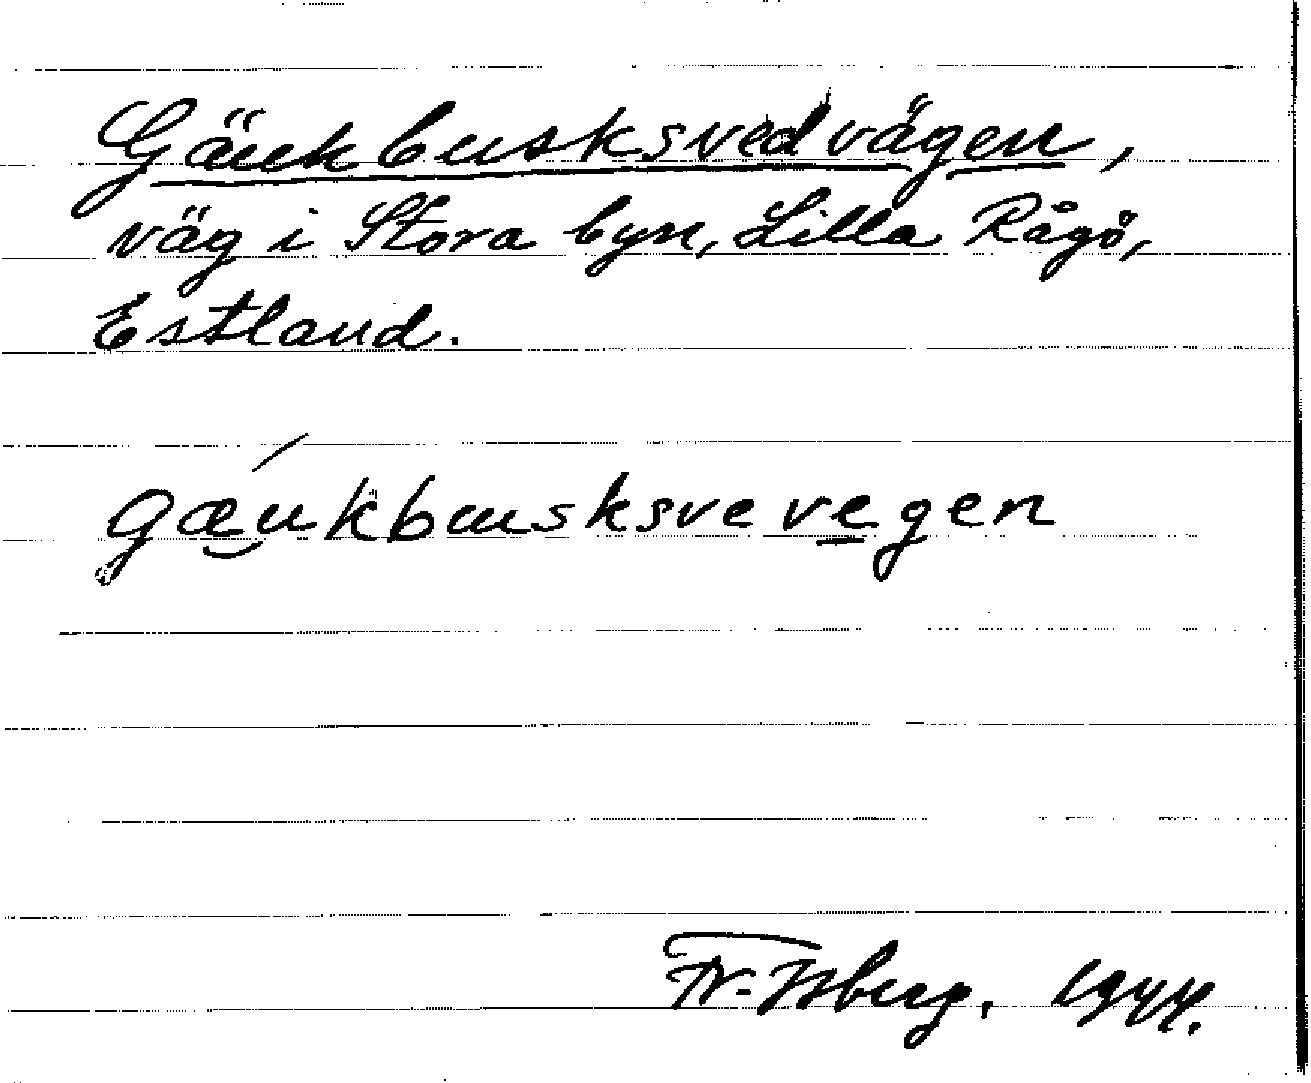 Gäukbusksvedvägen,
väg i Stora byn, Lilla Rågö,
Estland.
gæukbuusksvevegen
Fr. Isberg. 1944.